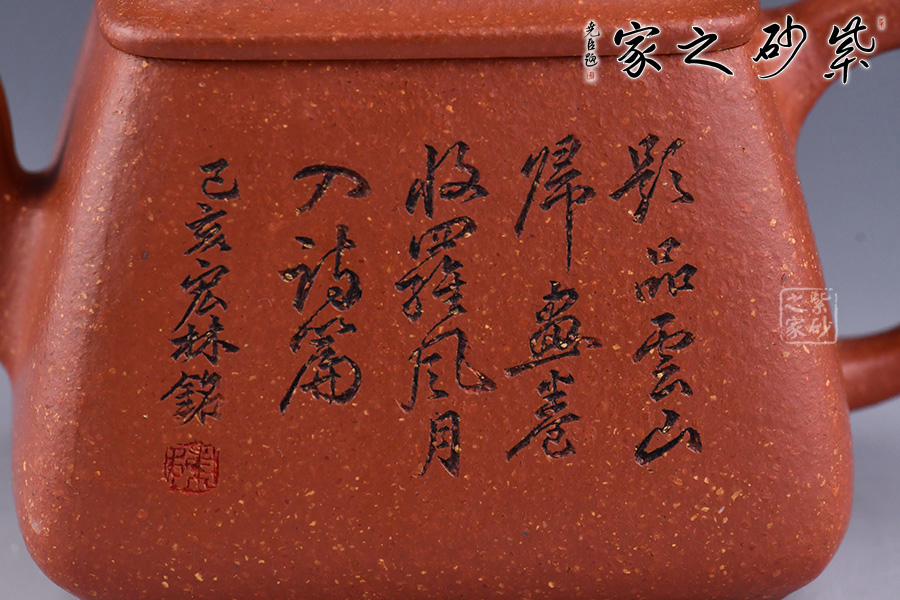 紫砂之家
堯臣題
題品雲山
歸畫卷
收羅風月
入詩篇
己亥宏林銘
紫砂
之家